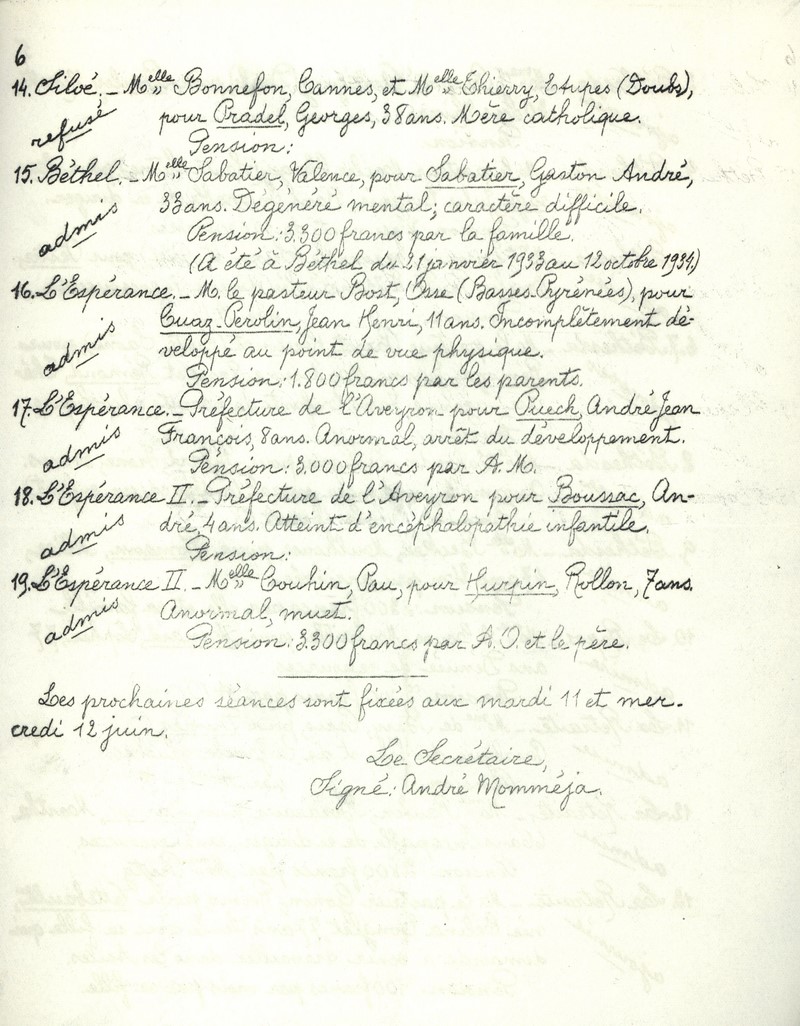 6
14. Siloé. – Melle Bonnefon, Cannes, et Melle Thierry, Etupes (Doubs),
refusé
pour Pradel, Georges, 38 ans. Mère catholique.
Pension:
15. Béthel. – Melle Sabatier, Valence, pour Sabatier, Gaston André,
admis
33 ans. Dégénéré mental; caractère difficile.
Pension: 3.300 francs par la famille.
(A été à Béthel du 21 janvier 1933 au 12 octobre 1934.)
16. L'Espérance. – M. le pasteur Bost, Osse (Basses-Pyrénées), pour
admis
Cuaz-Perolin, Jean Henri, 11 ans. Incomplètement dé-
veloppé au point de vue physique.
Pension: 1.800 francs par les parents.
17. L'Espérance. – Préfecture de l'Aveyron pour Puech, André Jean
admis
François, 8 ans. Anormal, arrêt du développement.
Pension: 3.000 francs par A.M.
18. L'Espérance II. – Préfecture de l'Aveyron pour Boussac, An-
admis
dré, 4 ans. Atteint d'encéphalopathie infantile.
Pension:
19. L'Espérance II. – Melle Couhin, Pau, pour Hurpin, Rollon, 7 ans.
admis
Anormal, muet.
Pension: 3.300 francs par A.O. et le père.
Les prochaines séances sont fixées aux mardi 11 et mer-
credi 12 juin.
Le Secrétaire,
Signé: André Momméja.